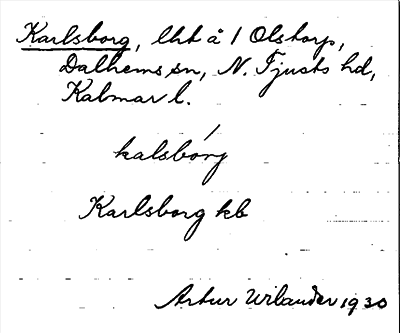 Karlsborg, lht å 1 Olstorp,
Dalhems sn, N. Tjusts hd,
Kalmar l.
kalsbórg
Karlsborg kb
Artur Wilander 1930